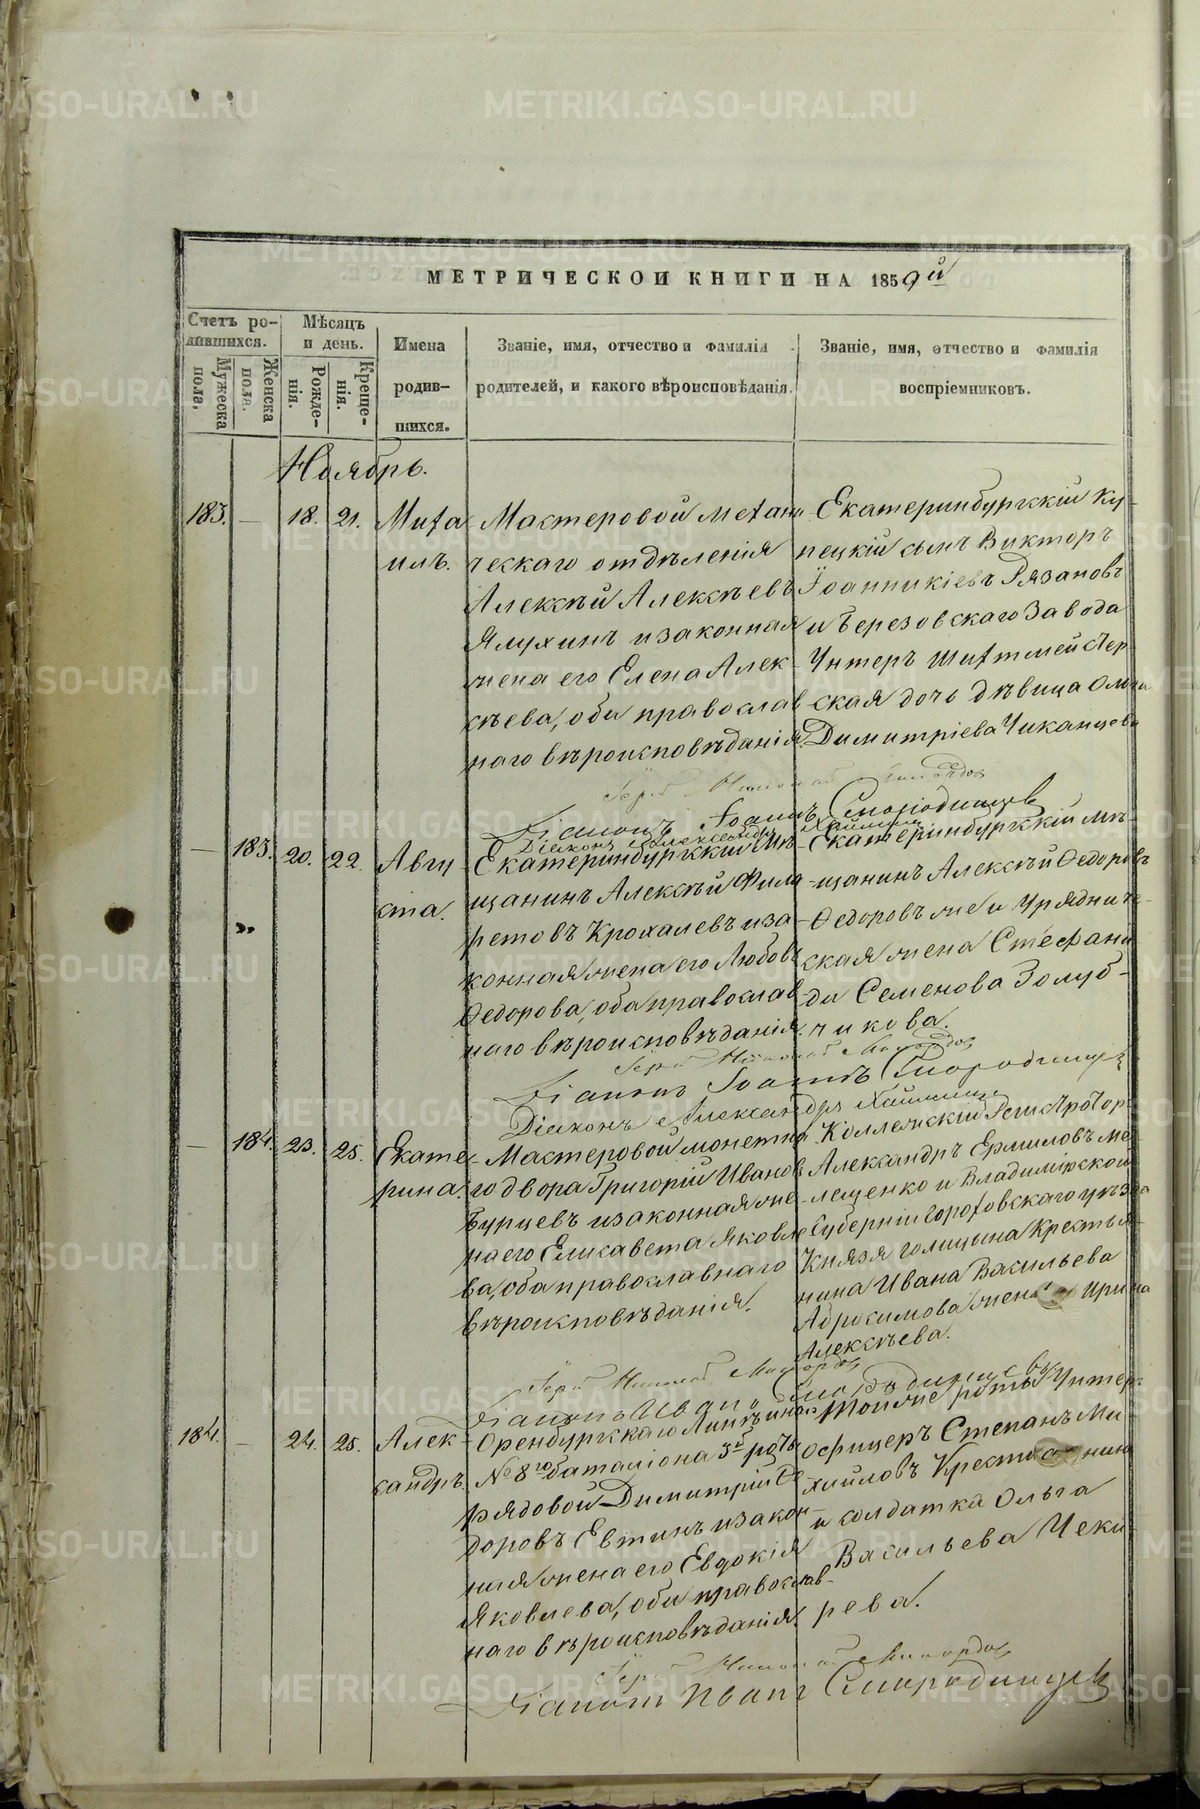 МЕТРИЧЕСКОЙ КНИГИ НА 1859й
Счетъ ро-
дившихся.
Мужеска пола.
Женска пола.
Мѣсяцъ
и день.
Рожде-
нія.
Креще-
нія.
Имена
родив-
шихся.
Званіе, имя, отчество и фамилія
родителей, и какого вѣроисповѣданія.
Званіе, имя, отчество и фамилія
воспріемниковъ.
Ноябрь.
183. — 18. 21. Миха
илъ.
Мастеровой механи
ческаго отдѣленія
Алексѣй Алексѣевъ
Ялухинъ и законная
жена его Елена Алек
сѣева, оба православ
наго вѣроисповѣданія.
Екатеринбургскій Ку-
пецкій сынъ Викторъ
Іоанникіевъ Рязановъ
и Березовскаго Завода
Унтеръ Шихтмейстер-
ская дочь дѣвица Ольга
Димитріева Чиканцева
Діаконъ Іоаннъ Смородинцевъ
Діаконъ Александръ
— 183. 20. 22. Авгу
ста.
Екатеринбургскій Мѣ-
щанинъ Алексѣй Фила
ретовъ Крохалевъ и за-
конная жена его Любовь
Федорова, оба православ
наго вѣроисповѣданія.
Екатеринбургскій мѣ-
щанинъ Алексѣй Федоровъ
Федоровъ же и Урядниче-
ская жена Стефани
да Семенова Голуб-
чикова.
Діаконъ Іоаннъ Смородинцевъ
Діаконъ Александръ
— 184. 23. 25. Екате
рина.
Мастеровой монетна
го двора Григорій Иванов
Бурцевъ и законная же-
на его Елисавета Яковле
ва, оба православнаго
вѣроисповѣданія.
Коллежскій Регистратор
Александръ Ермиловъ Ме-
лещенко и Владимірской
Губерніи Гороховскаго уѣзда
Князя Голицына Крестья-
нина Ивана Васильева
Абросимова жена Ирина
Алексѣева.
Діаконъ Иванъ Смородинцевъ
184. — 24. 25. Алек-
сандръ.
Оренбургскаго Линѣйнаго
№ 8го баталіона 3й роты
рядовой Димитрій Ѳе
доровъ Евтинъ и закон-
ная жена его Евдокія
Яковлева, оба православ-
наго вѣроисповѣданія.
Той же роты Унтеръ-
офицеръ Степанъ Ми
хайловъ Крестьянин
и солдатка Ольга
Васильева Чеки-
рева.
Діаконъ Иванъ Смородинцевъ
METRIKI.GASO-URAL.RU